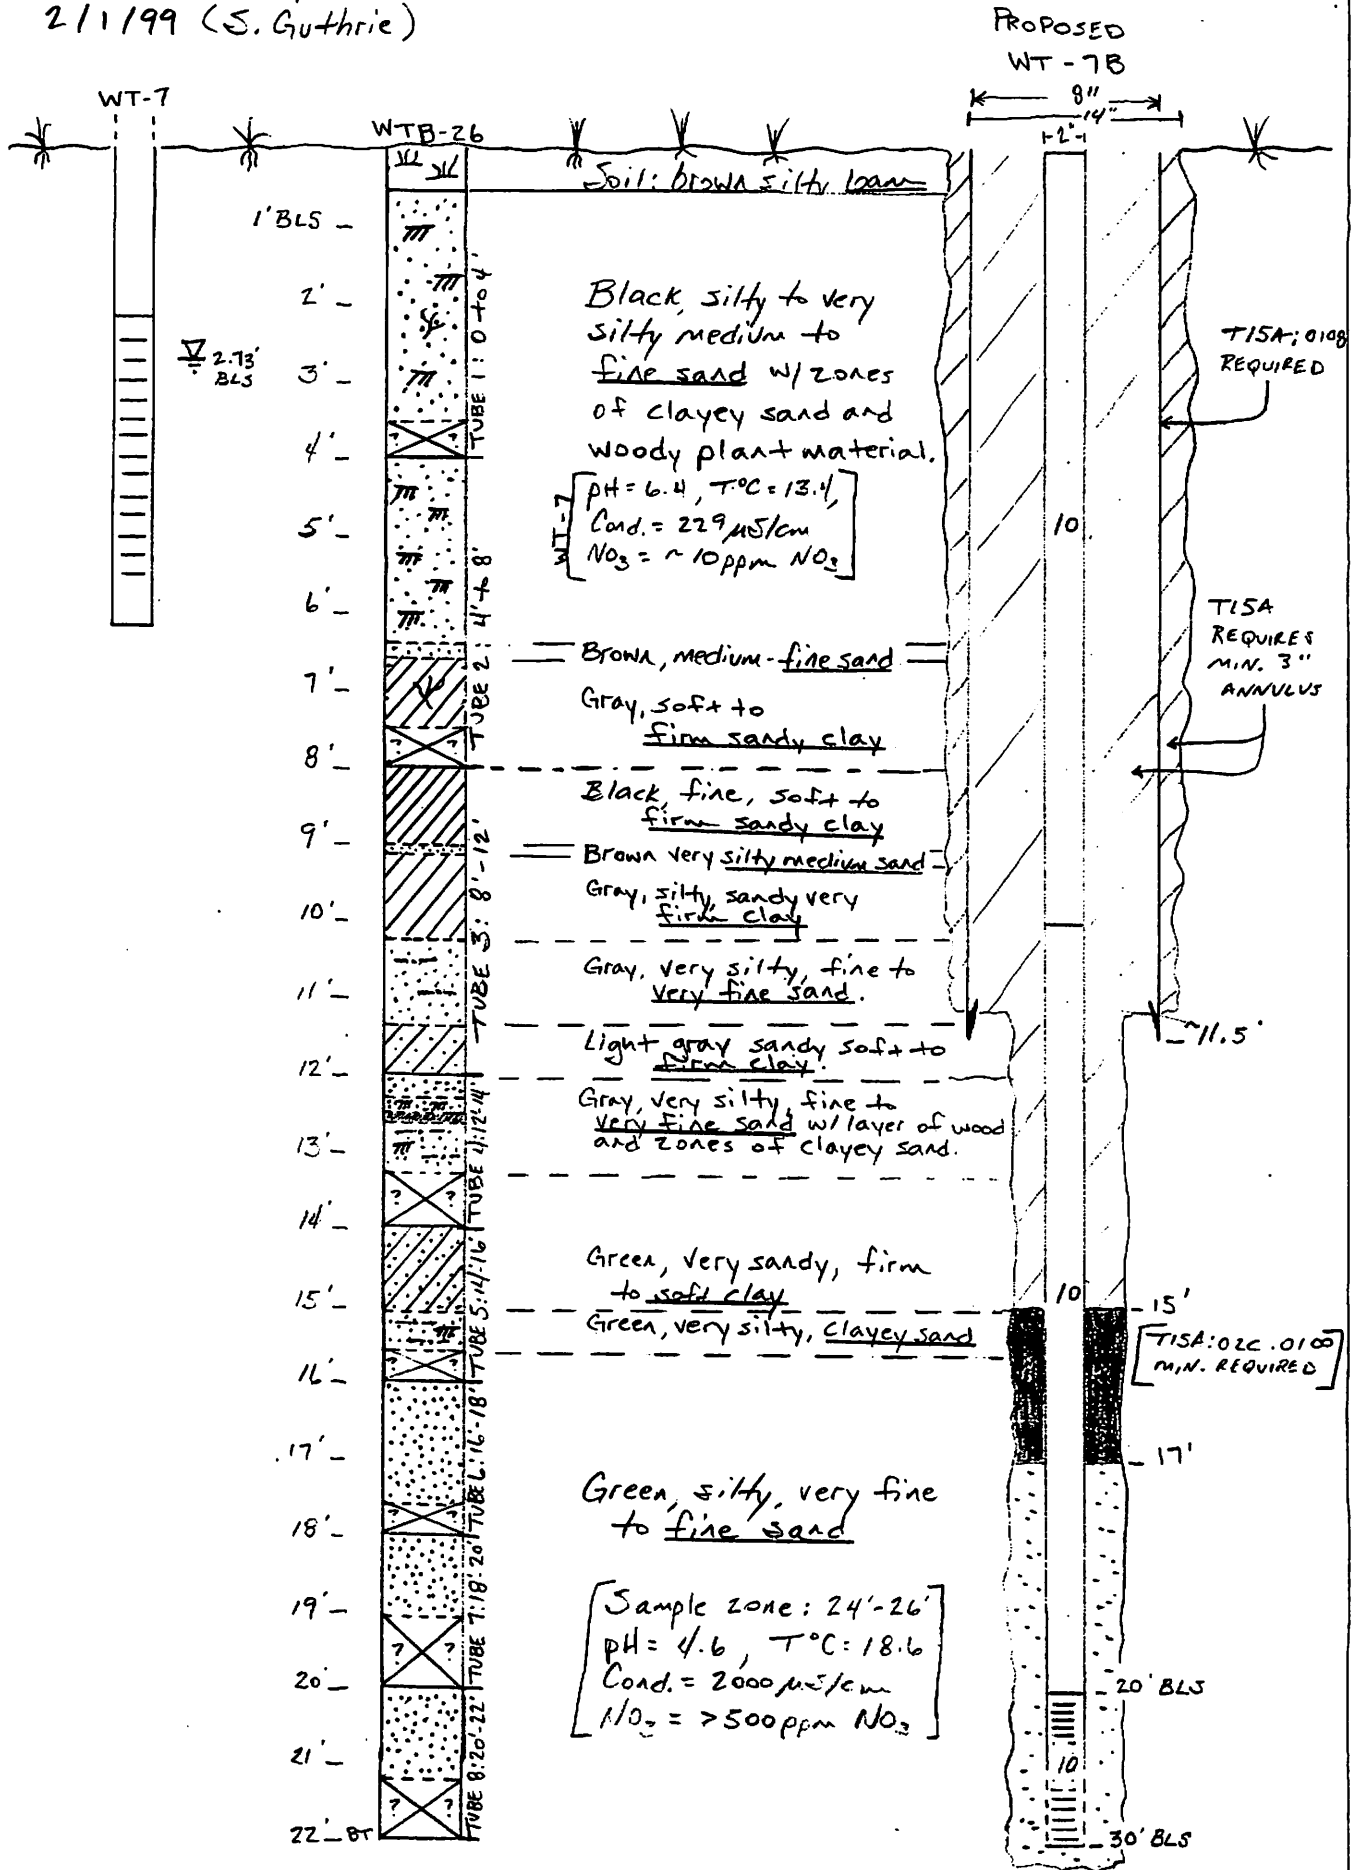 2/1/99 (S. Guthrie)
PROPOSED
WT-7B
8"
14"
2"
WT-7
WTB-26
Soil: brown silty loam
1' BLS
2'
2.73'
BLS
3'
4'
5'
6'
7'
8'
9'
10'
11'
12'
13'
14'
15'
16'
17'
18'
19'
20'
21'
22' BT
TUBE 1: 0 to 4'
TUBE 2: 4' to 8'
TUBE 3: 8'-12'
TUBE 4: 12'-14'
TUBE 5: 14'-16'
TUBE 6: 16'-18'
TUBE 7: 18'-20'
TUBE 8: 20'-22'
Black, silty to very
silty medium to
fine sand w/ zones
of clayey sand and
woody plant material.
WT-7
pH = 6.4, T°C = 13.4,
Cond. = 229 µS/cm
NO3 = ~10 ppm NO3
Brown, medium-fine sand
Gray, soft to
firm sandy clay
Black, fine, soft to
firm sandy clay
Brown very silty medium sand
Gray, silty, sandy very
firm clay
Gray, very silty, fine to
very fine sand.
Light gray sandy soft to
firm clay.
Gray, very silty, fine to
very fine sand w/ layer of wood
and zones of clayey sand.
Green, very sandy, firm
to soft clay
Green, very silty, clayey sand
Green, silty, very fine
to fine sand
Sample zone: 24'-26'
pH = 4.6, T°C: 18.6
Cond. = 2000 µS/cm
NO3 = >500 ppm NO3
T15A; 0108
REQUIRED
T15A
REQUIRES
MIN. 3"
ANNULUS
10
~11.5'
10
15'
T15A:02C.0100
MIN. REQUIRED
17'
20' BLS
10
30' BLS